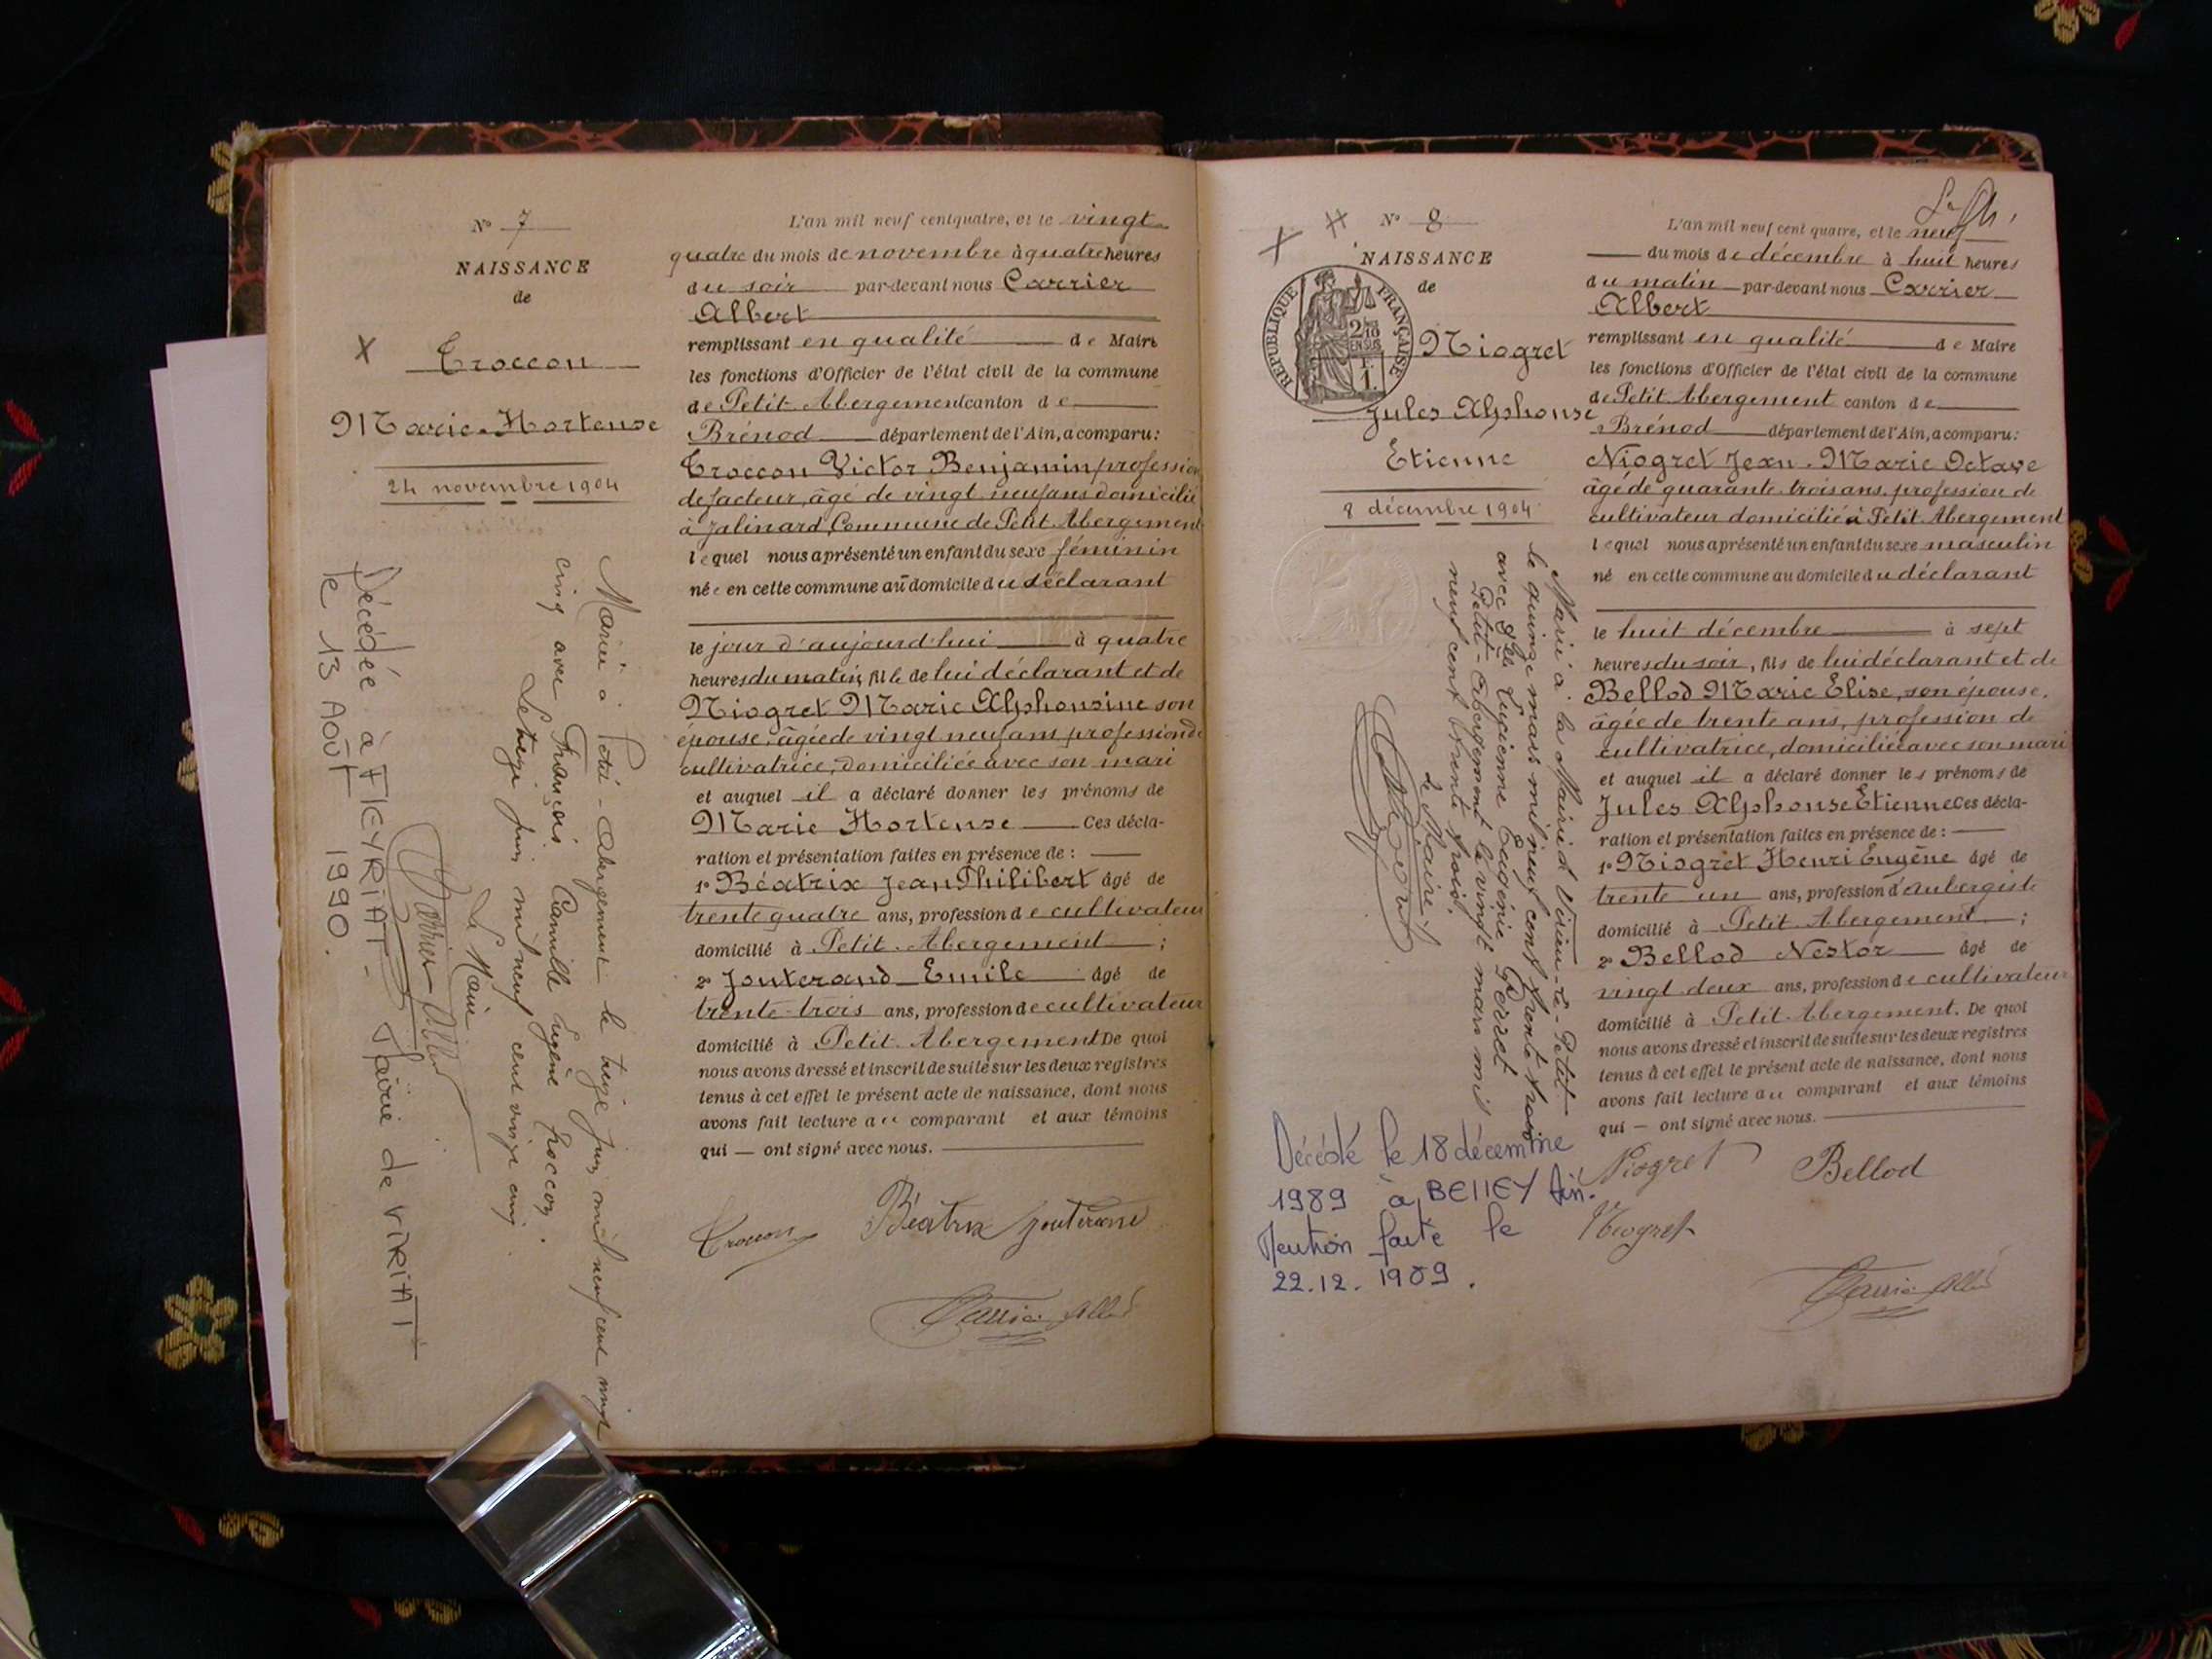 N° 7
NAISSANCE
de
X
Troccon
Marie-Hortense
24 novembre 1904
Marié à Petit-Abergement le treize juin mil neuf cent vingt
cinq avec François Camille Eugène Troccon.
Le treize juin mil neuf cent vingt cinq.
Le Maire
Carrier Albert
Décédée à FLEYRIAT - Mairie de VIRIAT
le 13 AOÛT 1990.
L'an mil neuf cent quatre, et le vingt
quatre du mois de novembre à quatre heures
du soir par-devant nous Carrier
Albert
remplissant en qualité de Maire
les fonctions d'Officier de l'état civil de la commune
de Petit-Abergement canton de
Brénod département de l'Ain, a comparu:
Troccon Victor Benjamin profession
de facteur, âgé de vingt neuf ans domicilié
à Jalinard, Commune de Petit Abergement
lequel nous a présenté un enfant du sexe féminin
née en cette commune au domicile du déclarant
le jour d'aujourd'hui à quatre
heures du matin, fille de lui déclarant et de
Niogret Marie Alphonsine son
épouse, âgée de vingt neuf ans profession de
cultivatrice, domiciliée avec son mari
et auquel il a déclaré donner les prénoms de
Marie Hortense Ces décla-
ration et présentation faites en présence de :
1° Béatrix Jean Philibert âgé de
trente quatre ans, profession de cultivateur
domicilié à Petit-Abergement ;
2° Jouterand Emile âgé de
trente-trois ans, profession de cultivateur
domicilié à Petit-Abergement De quoi
nous avons dressé et inscrit de suite sur les deux registres
tenus à cet effet le présent acte de naissance, dont nous
avons fait lecture au comparant et aux témoins
qui — ont signé avec nous.
Troccon Béatrix Jouterand
Carrier Albert
N° 8
NAISSANCE
de
REPUBLIQUE FRANÇAISE
2/10 EN SUS
Niogret
Jules Alphonse
Etienne
8 décembre 1904
Marié à la Mairie d Virieu-le-Petit
le quinze mars mil neuf cent trente trois
avec Elle Lucienne Eugénie Perret
Petit-Abergement le vingt mars mil
neuf cent trente trois.
Le Maire
Décédé le 18 décembre
1989 à BELLEY Ain.
Mention faite le
22.12.1989.
L'an mil neuf cent quatre, et le neuf
du mois de décembre à huit heures
du matin par-devant nous Carrier
Albert
remplissant en qualité de Maire
les fonctions d'Officier de l'état civil de la commune
de Petit-Abergement canton de
Brénod département de l'Ain, a comparu:
Niogret Jean-Marie Octave
âgé de quarante trois ans, profession de
cultivateur domicilié à Petit Abergement
lequel nous a présenté un enfant du sexe masculin
né en cette commune au domicile du déclarant
le huit décembre à sept
heures du soir, fils de lui déclarant et de
Bellod Marie Elise, son épouse,
âgée de trente ans, profession de
cultivatrice, domiciliée avec son mari
et auquel il a déclaré donner les prénoms de
Jules Alphonse Etienne Ces décla-
ration et présentation faites en présence de :
1° Niogret Henri Eugène âgé de
trente un ans, profession d'aubergiste
domicilié à Petit-Abergement ;
2° Bellod Nestor âgé de
vingt deux ans, profession de cultivateur
domicilié à Petit-Abergement. De quoi
nous avons dressé et inscrit de suite sur les deux registres
tenus à cet effet le présent acte de naissance, dont nous
avons fait lecture au comparant et aux témoins
qui — ont signé avec nous.
Niogret Bellod
Niogret
Carrier Albert